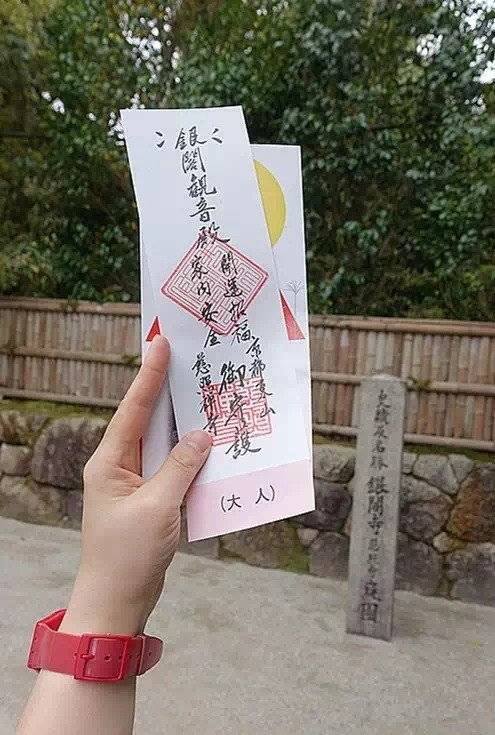 銀閣観音殿
開運招福
家内安全
京都東山
慈照禅寺
御守護
(大人)
史蹟及名勝 銀閣寺
庭園